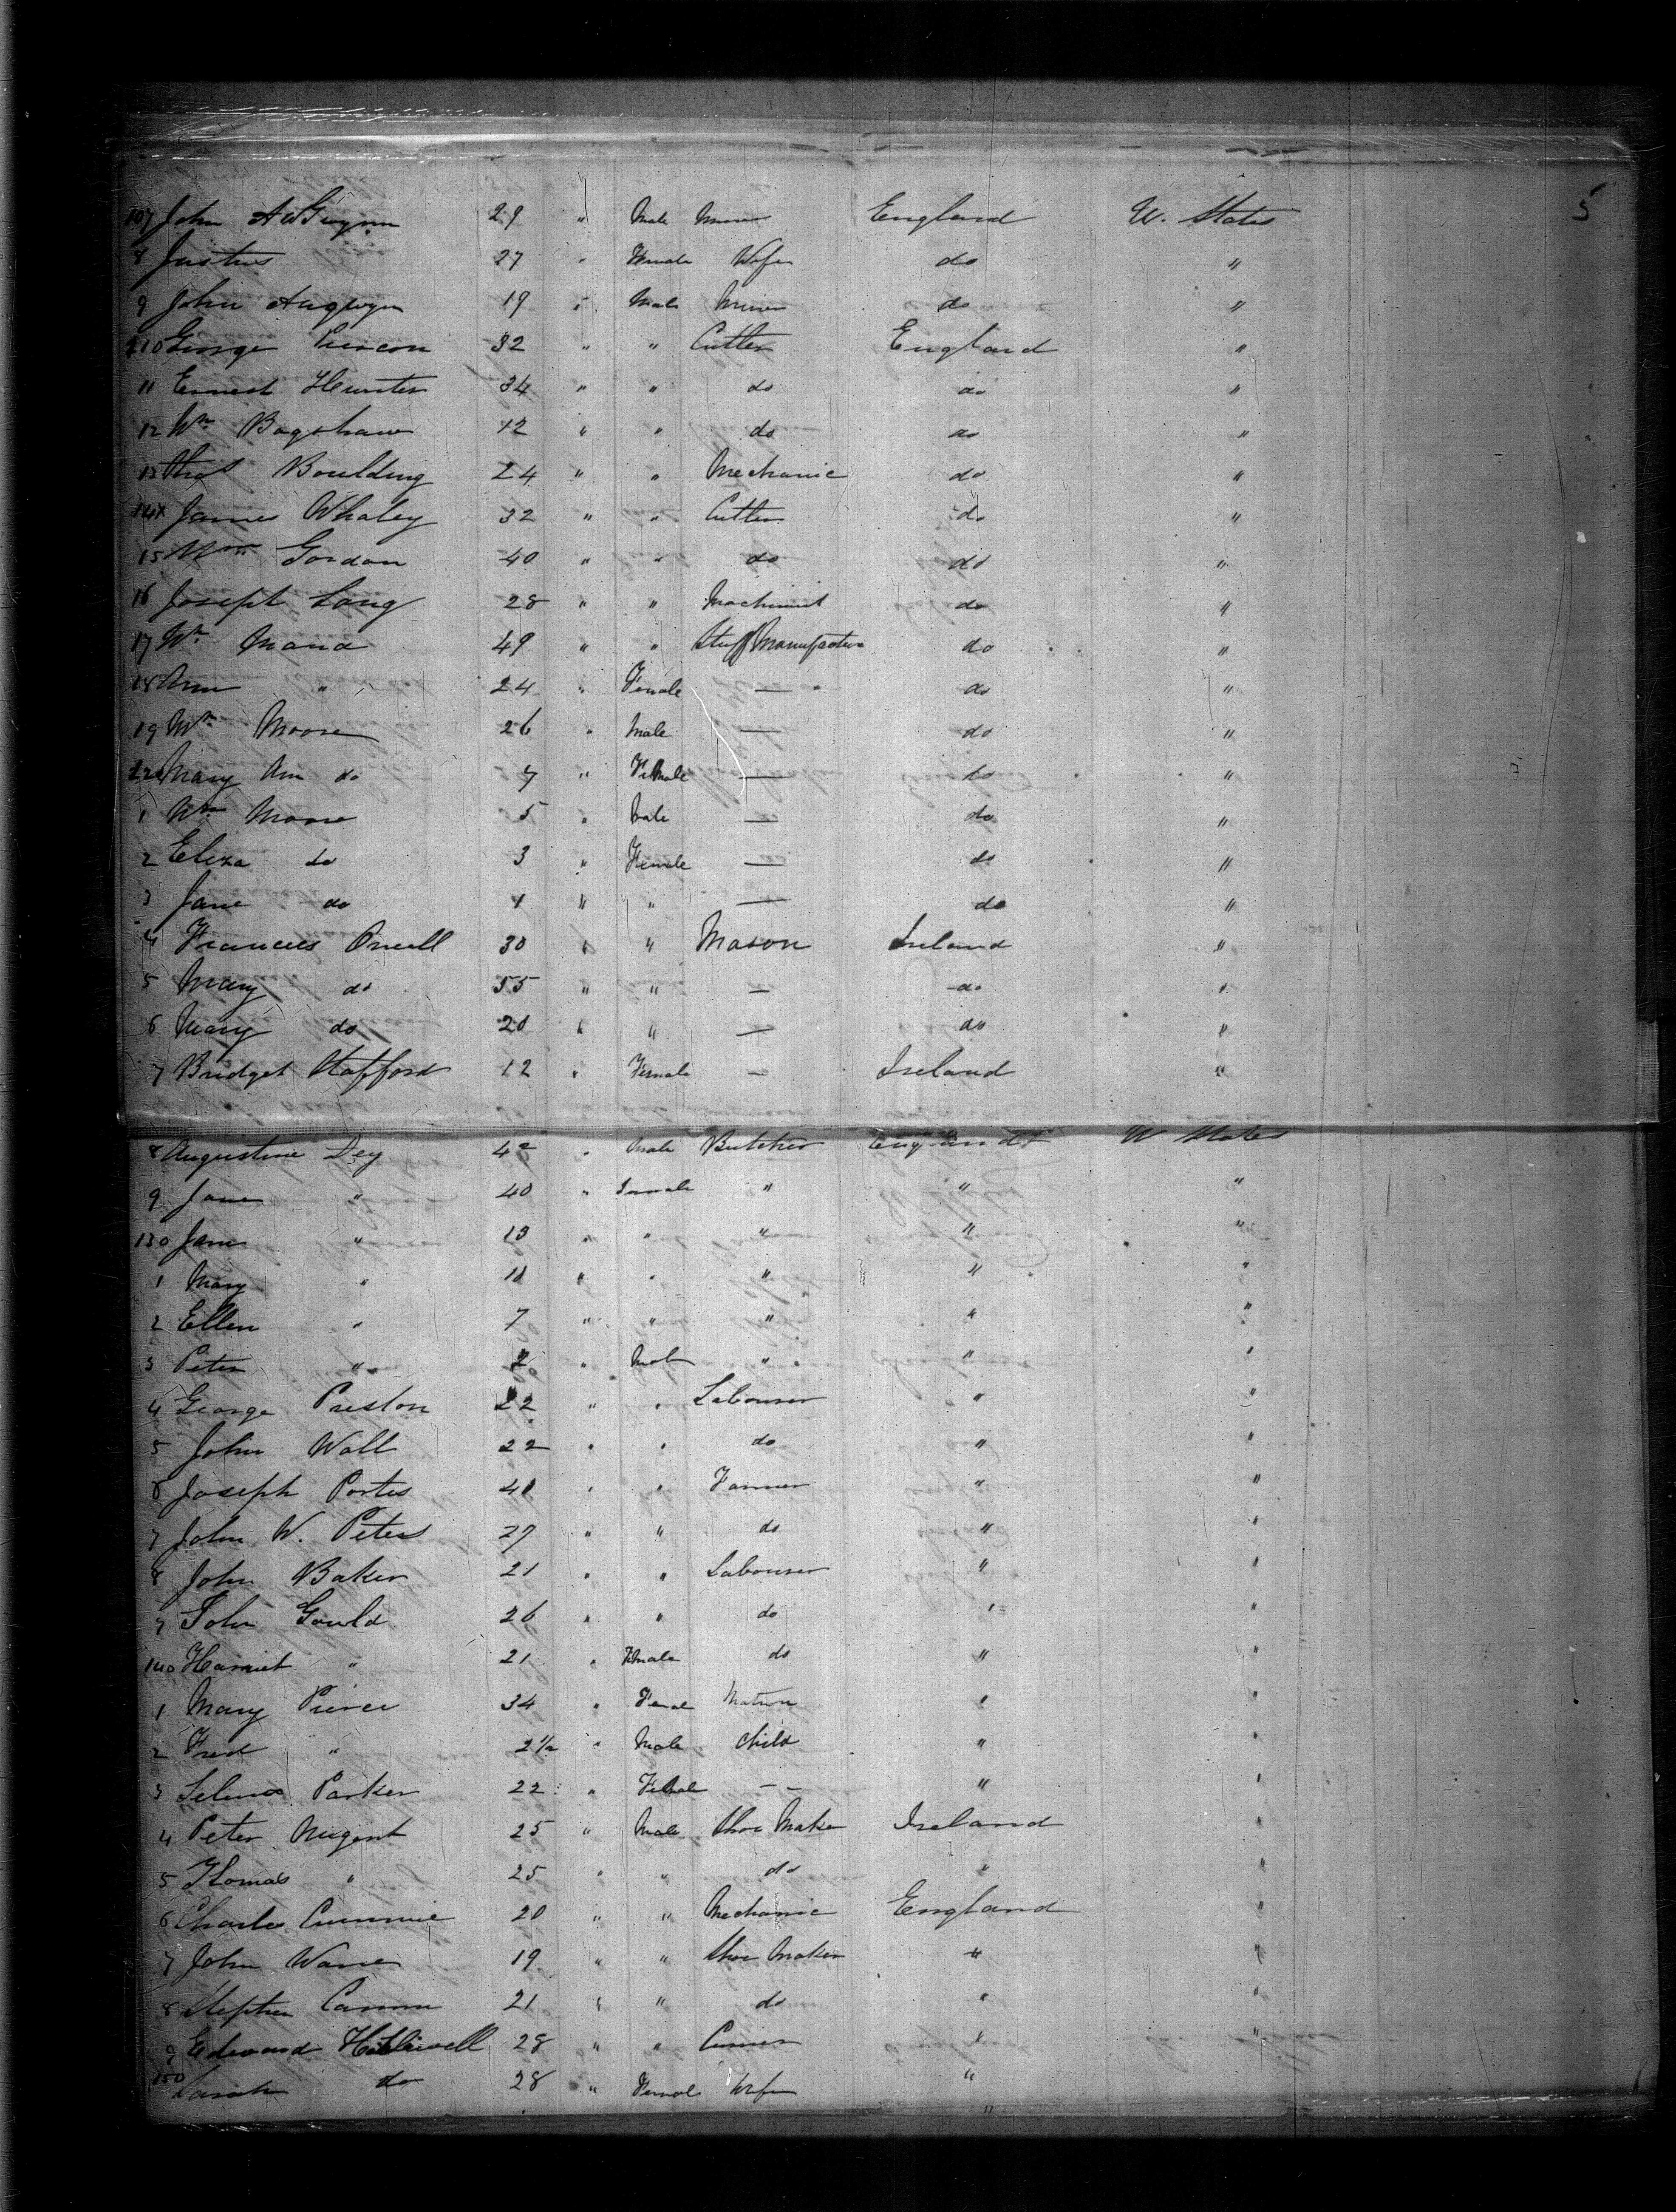 5
107 John 29 " Male Miner England U. States
8 27 " Female Wife do "
9 John Angwyn 19 " Male Miner do "
110 George 32 " " Cutler England "
11 Ernest Hunter 34 " " do do "
12 Wm Bagshaw 12 " " do do "
13 Thos Boulding 24 " " Mechanic do "
14x James Whaley 32 " " Cutler do "
15 Wm Gordon 40 " " do do "
16 Joseph Long 28 " " Machinist do "
17 Wm 49 " " Stuff Manufacture do "
18 Ann " 24 " Female — do "
19 Wm Moore 26 " Male — do "
Mary Ann do 7 " Female — do "
1 Wm Moore 5 " Male — do "
2 Eliza do 3 " Female — do "
3 Jane do 1 " " — do "
4 Frances Oneill 30 " " Mason Ireland "
5 Mary do 55 " " — do "
6 Mary do 20 " " — do "
7 Bridget Stafford 12 " Female — Ireland "
8 Augustine Dey 42 " Male Butcher England U States
9 Jane " 40 " Female " " "
130 Jane " 13 " " " " "
1 Mary " 11 " " " " "
2 Ellen " 7 " " " " "
3 Peter " 2 " Male " " "
4 George Preston 22 " " Labourer " "
5 John Wall 22 " " do " "
6 Joseph Porter " " Farmer " "
7 John W. Peters 27 " " do " "
8 John Baker 21 " " Labourer " "
9 John Gould 26 " " do " "
140 Harriet " 21 " Female do " "
1 Mary Pierce 34 " Female Matron " "
2 Fred " 2½ " Male Child " "
3 Selina Parker 22 " Female — — " "
4 Peter Nugent 25 " Male Shoe Maker Ireland "
5 Thomas " 25 " " do " "
6 Charles 20 " " Mechanic England "
7 John Warre 19 " " Shoe Maker " "
8 Stephen 21 " " do " "
9 Edward Halliwell 28 " " Currier " "
150 Sarah do 28 " Female Wife "
"